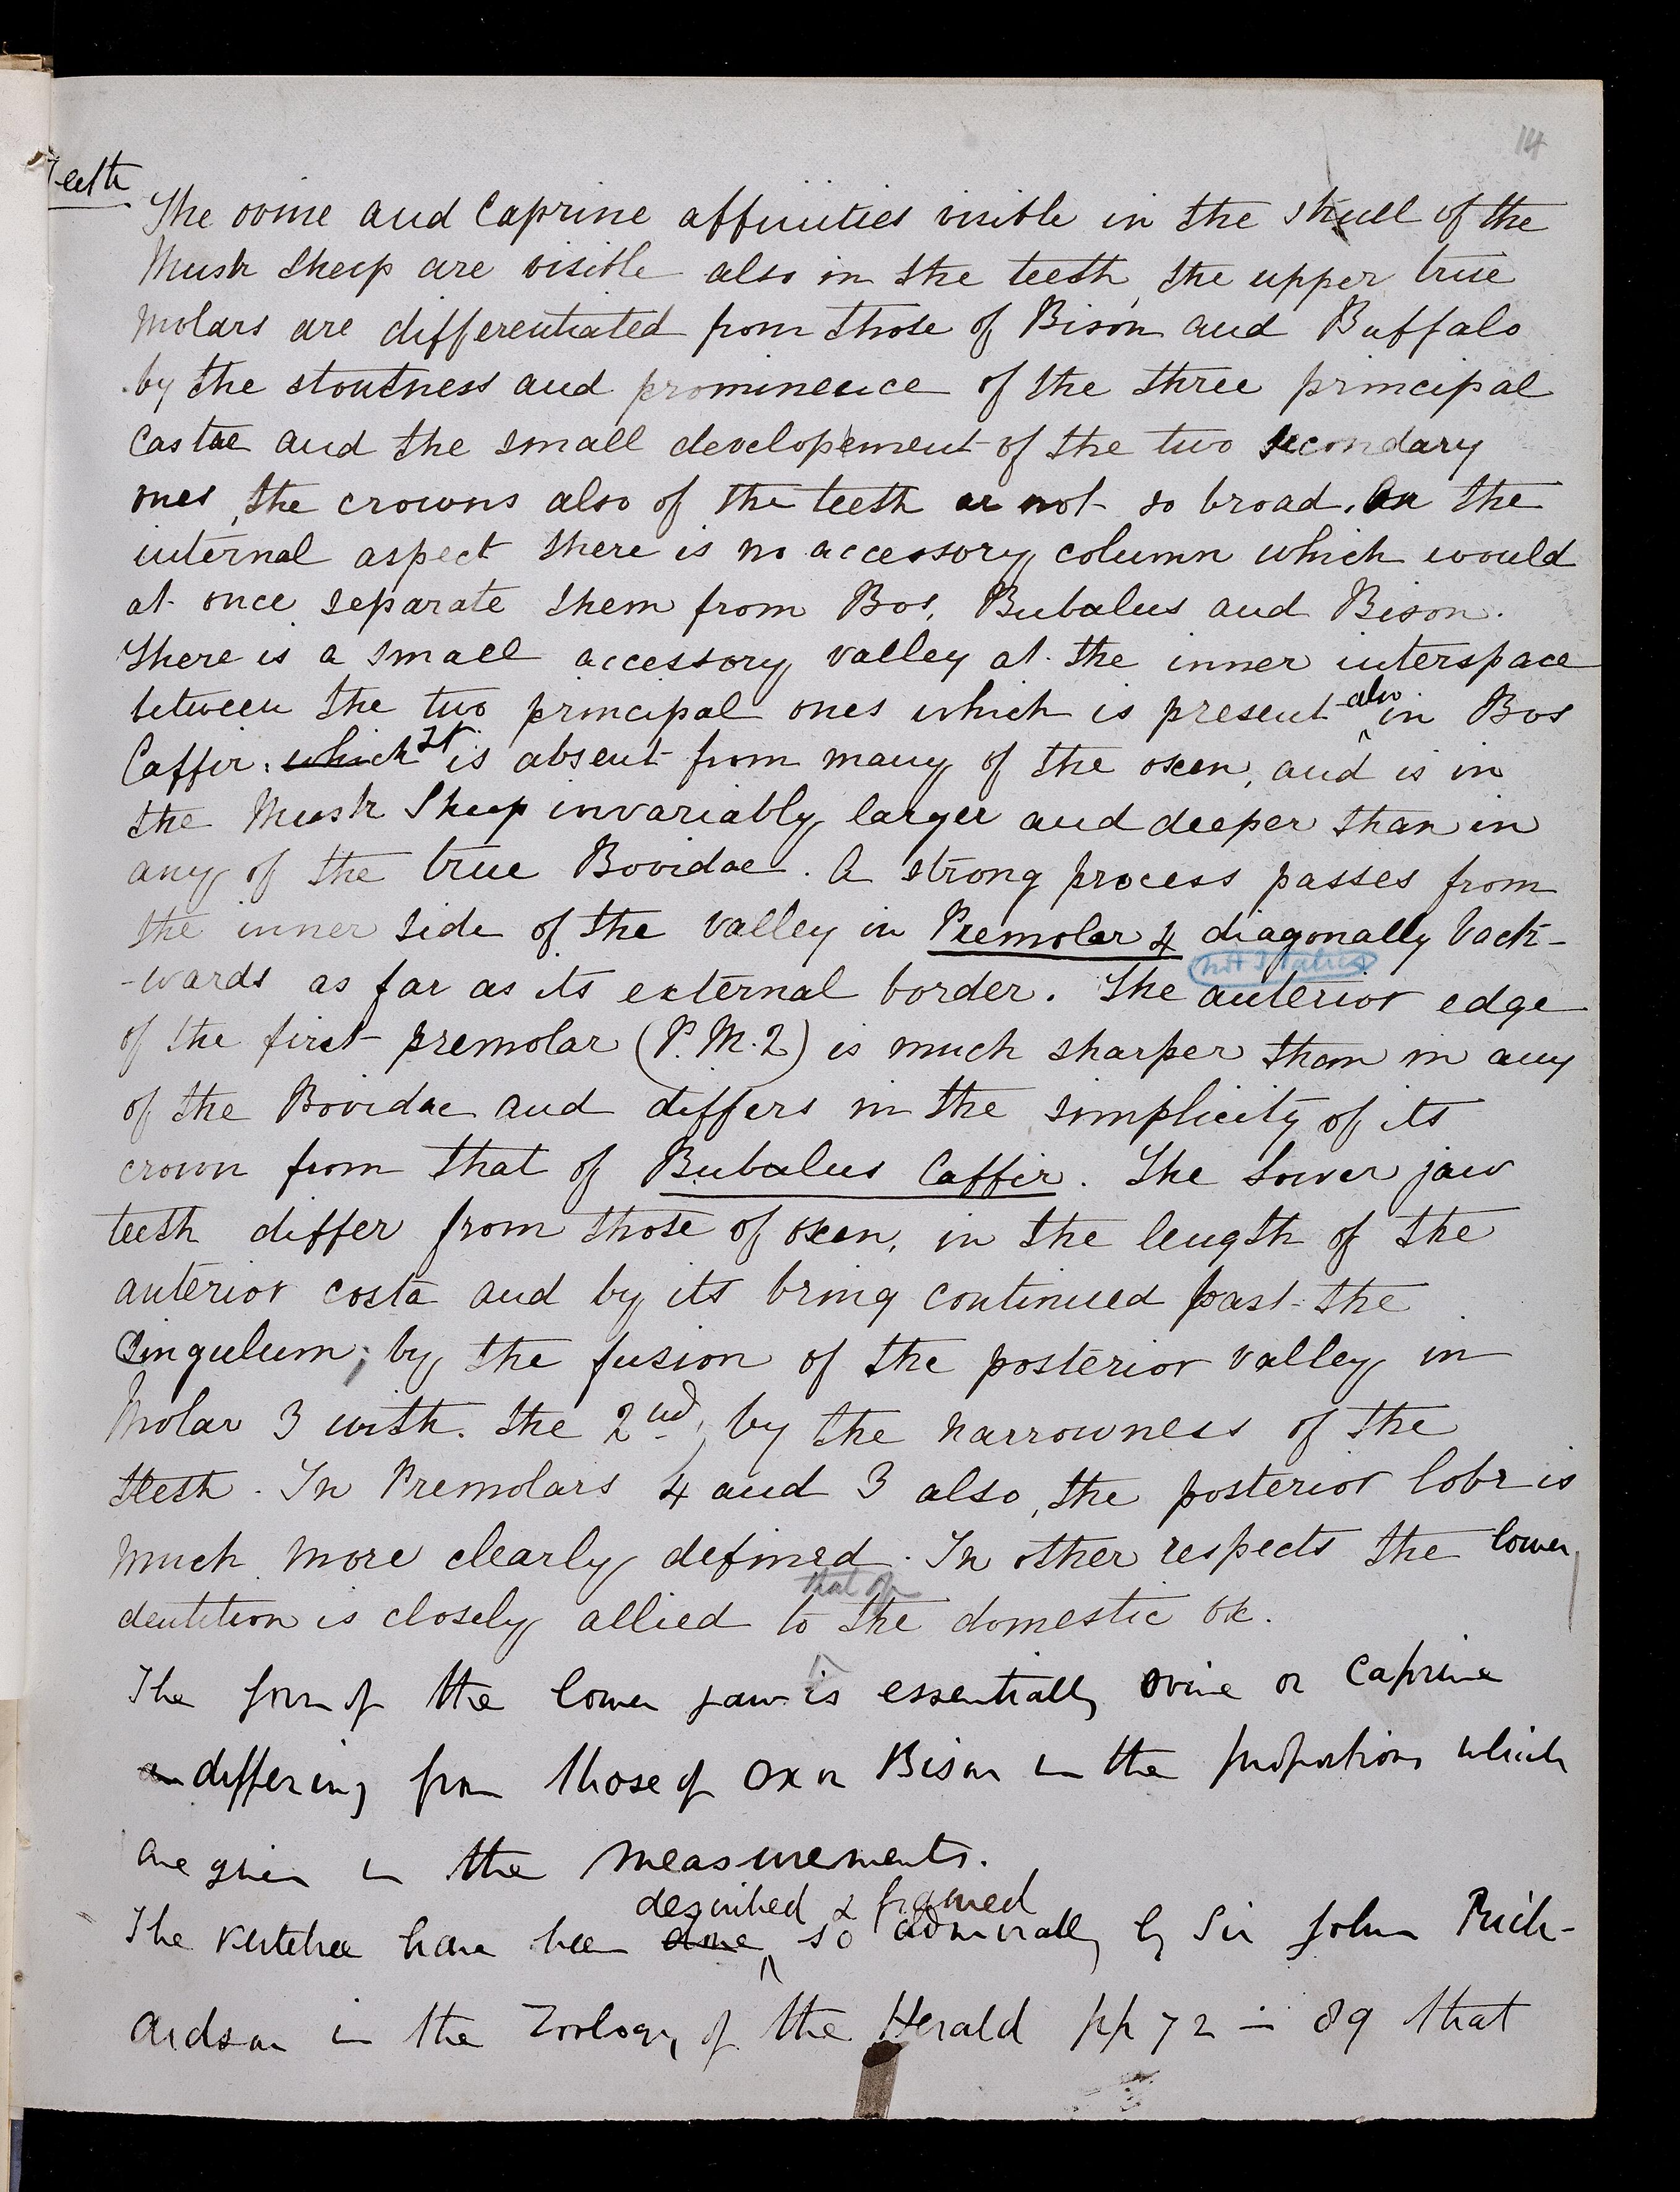 14
Teeth
The ovine and Caprine affinities visible in the skull of the
Musk Sheep are visible also in the teeth, the upper true
Molars are differentiated from those of Bison and Buffalo
by the stoutness and prominence of the three principal
Costae and the small developement of the two secondary
ones, the crowns also of the teeth are not so broad. On the
internal aspect there is no accessory column which would
at once separate them from Bos, Bubalus and Bison.
There is a small accessory valley at the inner interspace
between the two principal ones which is present also in Bos
Caffir. which It is absent from many of the oxen, and is in
the Musk Sheep invariably larger and deeper than in
any of the true Bovidae. A strong process passes from
the inner side of the valley in Premolar 4 diagonally back-
not Italics
-wards as far as its external border. The anterior edge
of the first premolar (P.M.2) is much sharper than in any
of the Bovidae and differs in the simplicity of its
crown from that of Bubalus Caffir. The lower jaw
teeth differ from those of oxen, in the length of the
anterior costa and by its bring continued past the
Cingulum; by the fusion of the posterior valley in
Molar 3 with. the 2nd; by the narrowness of the
teeth. In Premolars 4 and 3 also, the posterior lobe is
much more clearly defined. In other respects the lower
dentition is closely allied to that of the domestic ox.
The form of the lower jaw is essentially ovine or caprine
differing from those of Ox or Bison in the proportions which
are given in the measurements.
The vertebrae have been done described & figured so admirably by Sir John Rich-
ardson in the Zoology of the Herald pp 72 - 89 that